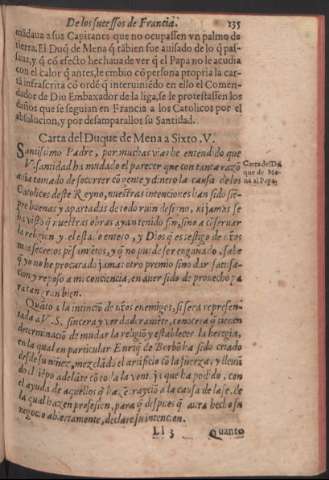 De los sucessos de Francia. 135
mãdava a sus Capitanes que no ocupassen un palmo de
tierra. El Duq̃ de Mena q̃ tãbien fue avisado de lo q̃ pas-
sava, y q̃ cõ efecto hechava de ver q̃ el Papa no le acudia
con el calor q̃ antes, le embio cõ persona propria la car-
ta infrascrita cõ ordẽ q̃ interuiniẽdo en ello el Comen-
dador de Dio Embaxador de la liga, se le protestassen los
daños que se seguian en Francia a los Catolicos por el
absolucion, y por desampararlos su Santidad.
Carta del Duque de Mena a Sixto. V.
Santissimo Padre, por muchas vias he entendido que
V. santidad ha mudado el parecer que con tanta razõ
avia tomado de socorrer cõ gente y dinero la causa de los
Catolicos deste Reyno, nuestras intenciones han sido siẽ-
pre buenas y apartadas de todo ruin desseño, ni jamas se
ha visto q̃ nuestras obras ayan tenido fin, sino a cõservar
la religion y el estado entero, y Dios q̃ es testigo de nr̃os
mas secretos pẽsamiẽtos, y q̃ no puede ser engañado, sabe
q̃ yo no he procurado jamas otro premio sino dar satisfa-
cion y reposo a mi conciencia, en aver sido de provecho pa
ra tan gran bien.
Quãto a la intinciõ de nr̃os enemigos, si sera represen-
tada a V. S. sincera y verdaderamẽte, conocera q̃ tienen
determinaciõ de mudar la religiõ y establecer la heregia,
en la qual en particular Enriq̃ de Borbõ ha sido criado
desde su niñez, mezclãdo el artificio cõ la fuerza, y llevã
do el tp̃o adelãte
el ayuda de aquellos q̃ hazẽ traycion a la causa de
la qual hazen profesion, para q̃ despues q̃ aura hecho su
negocio abiertamente, declare su intencion.
Ll 3 Quanto
Carta del Du
que de Me-
na al Papa.